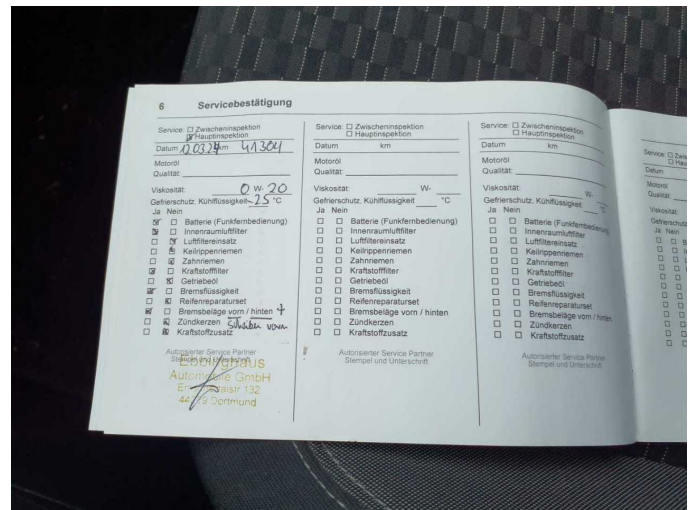 6 Servicebestätigung
Service: ☐ Zwischeninspektion
☒ Hauptinspektion
Datum 12.03.24 km 41304
Motoröl
Qualität:
Viskosität: 0 W- 20
Gefrierschutz, Kühlflüssigkeit -25 °C
Ja Nein
☒ ☐ Batterie (Funkfernbedienung)
☒ ☐ Innenraumluftfilter
☐ ☒ Luftfiltereinsatz
☐ ☒ Keilrippenriemen
☐ ☒ Zahnriemen
☒ ☐ Kraftstofffilter
☐ ☒ Getriebeöl
☒ ☐ Bremsflüssigkeit
☐ ☒ Reifenreparaturset
☒ ☐ Bremsbeläge vorn / hinten +
☐ ☒ Zündkerzen Scheiben vorn
☐ ☒ Kraftstoffzusatz
Autorisierter Service Partner
Stempel und Unterschrift
Automobile GmbH
Dortmund
Service: ☐ Zwischeninspektion
☐ Hauptinspektion
Datum km
Motoröl
Qualität:
Viskosität: W-
Gefrierschutz, Kühlflüssigkeit °C
Ja Nein
☐ ☐ Batterie (Funkfernbedienung)
☐ ☐ Innenraumluftfilter
☐ ☐ Luftfiltereinsatz
☐ ☐ Keilrippenriemen
☐ ☐ Zahnriemen
☐ ☐ Kraftstofffilter
☐ ☐ Getriebeöl
☐ ☐ Bremsflüssigkeit
☐ ☐ Reifenreparaturset
☐ ☐ Bremsbeläge vorn / hinten
☐ ☐ Zündkerzen
☐ ☐ Kraftstoffzusatz
Autorisierter Service Partner
Stempel und Unterschrift
Service: ☐ Zwischeninspektion
☐ Hauptinspektion
Datum km
Motoröl
Qualität:
Viskosität: W-
Gefrierschutz, Kühlflüssigkeit °C
Ja Nein
☐ ☐ Batterie (Funkfernbedienung)
☐ ☐ Innenraumluftfilter
☐ ☐ Luftfiltereinsatz
☐ ☐ Keilrippenriemen
☐ ☐ Zahnriemen
☐ ☐ Kraftstofffilter
☐ ☐ Getriebeöl
☐ ☐ Bremsflüssigkeit
☐ ☐ Reifenreparaturset
☐ ☐ Bremsbeläge vorn / hinten
☐ ☐ Zündkerzen
☐ ☐ Kraftstoffzusatz
Autorisierter Service Partner
Stempel und Unterschrift
Service: ☐
Datum
Motoröl
Qualität:
Viskosität:
Ja Nein